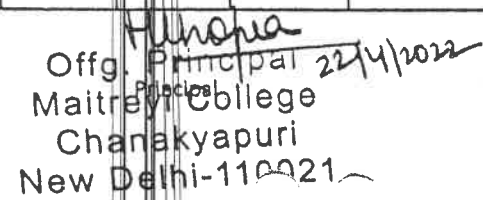 Offg. Principal 22/4/2022
Principal
Maitreyi College
Chanakyapuri
New Delhi-110021